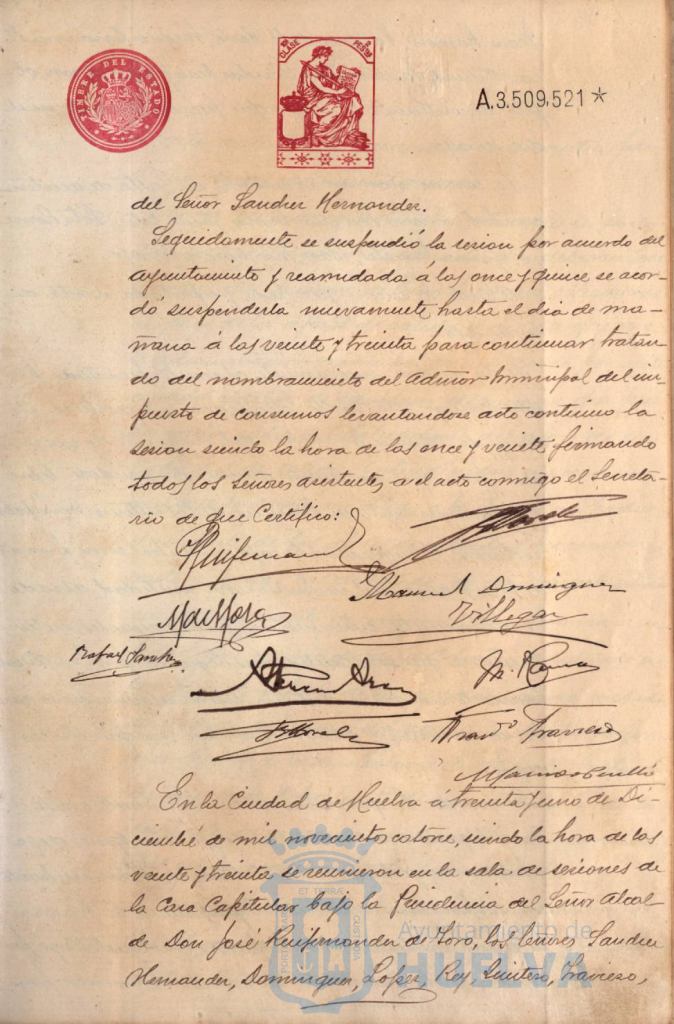 TIMBRE DEL ESTADO
CLASE
A.3.509,521*
del Señor Sanchez Hernandez.
Seguidamente se suspendió la sesion por acuerdo del
ayuntamiento y reanudada á las once y quince se acor-
dó suspenderla nuevamente hasta el dia de ma-
ñana á las veinte y treinta para continuar tratan-
do del nombramiento del Admor municipal del im-
puesto de consumos levantandose acto continuo la
sesion siendo la hora de las once y veinte firmando
todos los Señores asistentes a el acto conmigo el Secreta-
rio de que Certifico:
Manuel Dominguez
Villegas
Rafael Sanchez
Travieso
En la Ciudad de Huelva á treinta y uno de Di-
ciembre de mil novecientos catorce, siendo la hora de las
veinte y treinta se reunieron en la sala de sesiones de
la Casa Capitular bajo la Presidencia del Señor Alcal-
de Don José Ruifernandez de Toro, los Señores Sanchez
Hernandez, Dominguez, Lopez, Rey, Quintero, Travieso,
Ayuntamiento de
HUELVA